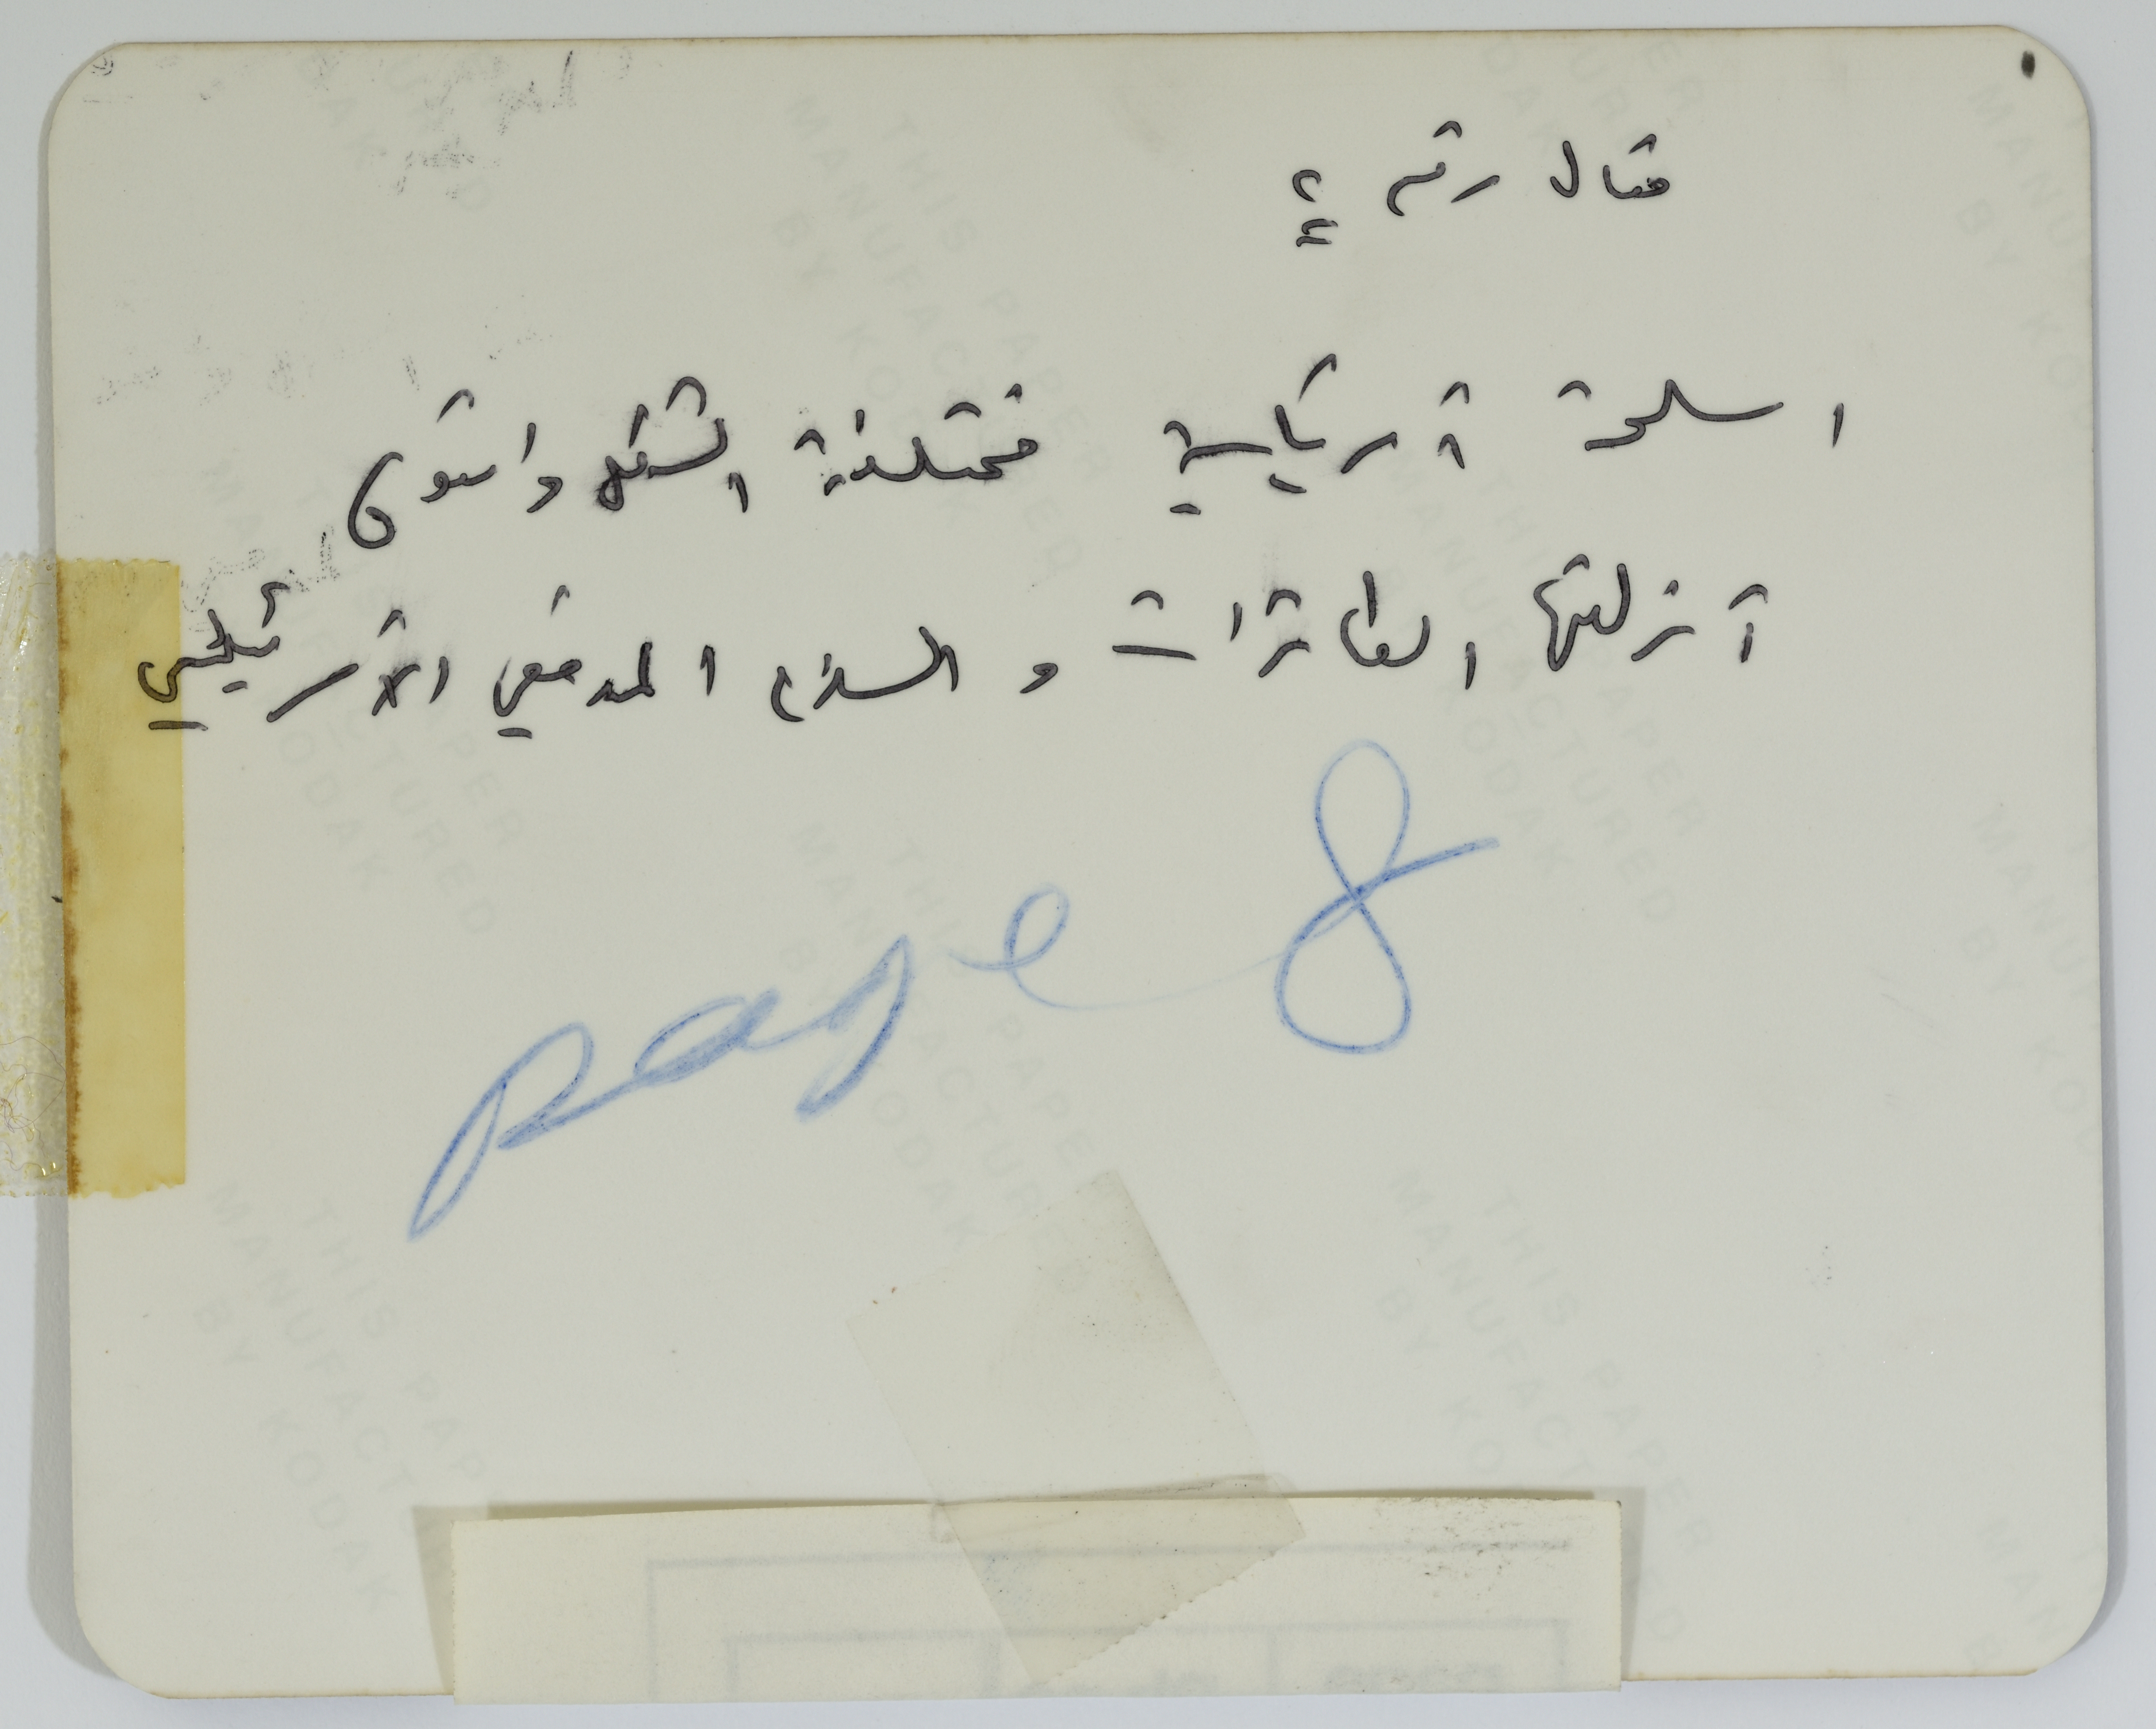 مقال رقم ٤
اسلحة امريكية مختلفة الشكل والنوع
انزلتها الطائرات و السلاح المدفعي الامريكي
page 8
THIS PAPER
MANUFACTURED
BY KODAK